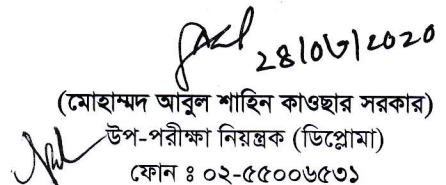 ২৪/০৬/২০২০
(মোহাম্মদ আবুল শাহিন কাওছার সরকার)
উপ-পরীক্ষা নিয়ন্ত্রক (ডিপ্লোমা)
ফোন ঃ ০২-৫৫০০৬৫৩১